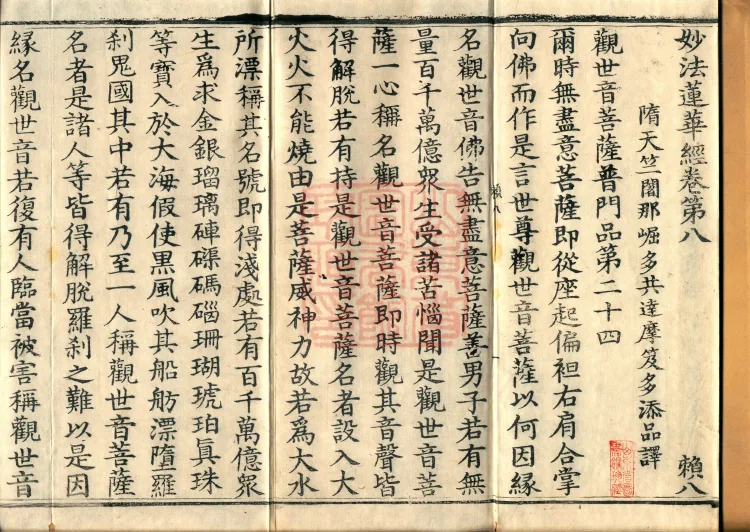 妙法蓮華經卷第八 賴八
隋天竺闍那崛多共達摩笈多添品譯
觀世音菩薩普門品第二十四
爾時無盡意菩薩即從座起偏袒右肩合掌
向佛而作是言世尊觀世音菩薩以何因緣
名觀世音佛告無盡意菩薩善男子若有無
賴八
量百千萬億眾生受諸苦惱聞是觀世音菩
薩一心稱名觀世音菩薩即時觀其音聲皆
得解脫若有持是觀世音菩薩名者設入大
火火不能燒由是菩薩威神力故若為大水
所漂稱其名號即得淺處若有百千萬億眾
生為求金銀瑠璃硨磲碼碯珊瑚琥珀真珠
等寶入於大海假使黑風吹其船舫漂墮羅
剎鬼國其中若有乃至一人稱觀世音菩薩
名者是諸人等皆得解脫羅剎之難以是因
緣名觀世音若復有人臨當被害稱觀世音